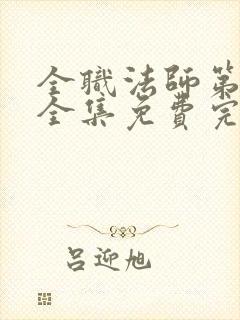 全職法師第
全集免費完
呂迎旭